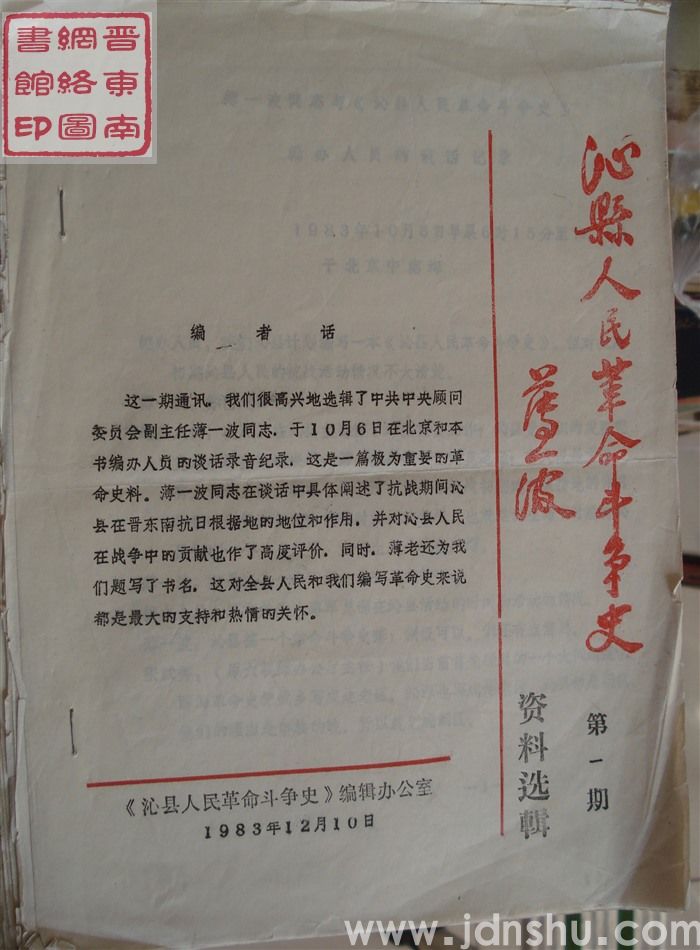 晋東南
網絡圖
書館印
沁縣人民革命斗争史
薄一波
资料选輯
第一期
编者话
这一期通讯，我们很高兴地选辑了中共中央顾问
委员会副主任薄一波同志，于10月6日在北京和本
书编办人员的谈话录音纪录，这是一篇极为重要的革
命史料。薄一波同志在谈话中具体阐述了抗战期间沁
县在晋东南抗日根据地的地位和作用，并对沁县人民
在战争中的贡献也作了高度评价，同时，薄老还为我
们题写了书名，这对全县人民和我们编写革命史来说
都是最大的支持和热情的关怀。
《沁县人民革命斗争史》编辑办公室
1983年12月10日
www.jdnshu.com